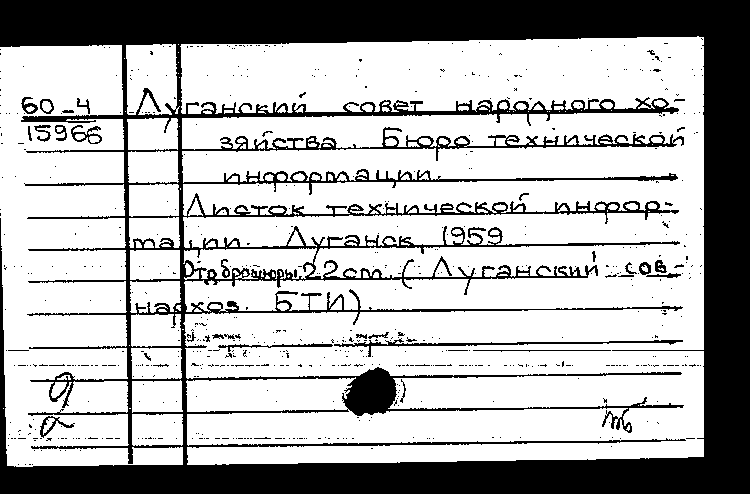 60-4 Луганский совет народного хо-
15966 зяйства. Бюро технической
информации.
Листок технической инфор-
мации. Луганск, 1959
Отд. брошюры. 22 cm. (Луганский сов-
нархоз. БТИ).
2